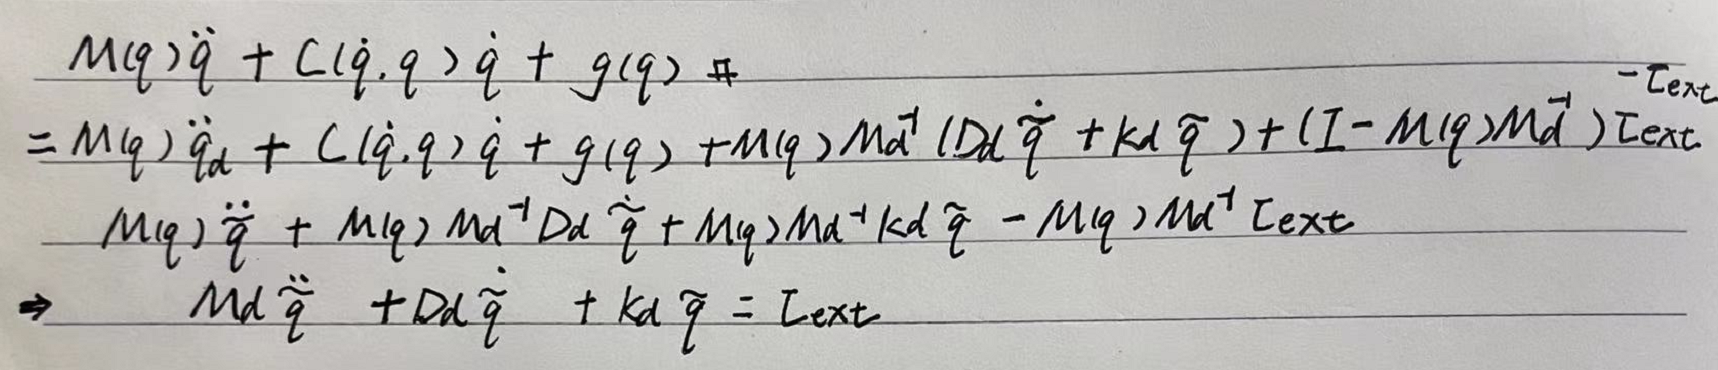 M(q)q̈ + C(q̇.q)q̇ + g(q)
-τext
= M(q)q̈d + C(q̇.q)q̇ + g(q) + M(q)Md⁻¹(Dd q̃̇ + Kd q̃) + (I - M(q)Md⁻¹)τext
M(q)q̃̈ + M(q)Md⁻¹Dd q̃̇ + M(q)Md⁻¹Kd q̃ - M(q)Md⁻¹τext
⇒ Md q̃̈ + Dd q̃̇ + Kd q̃ = τext